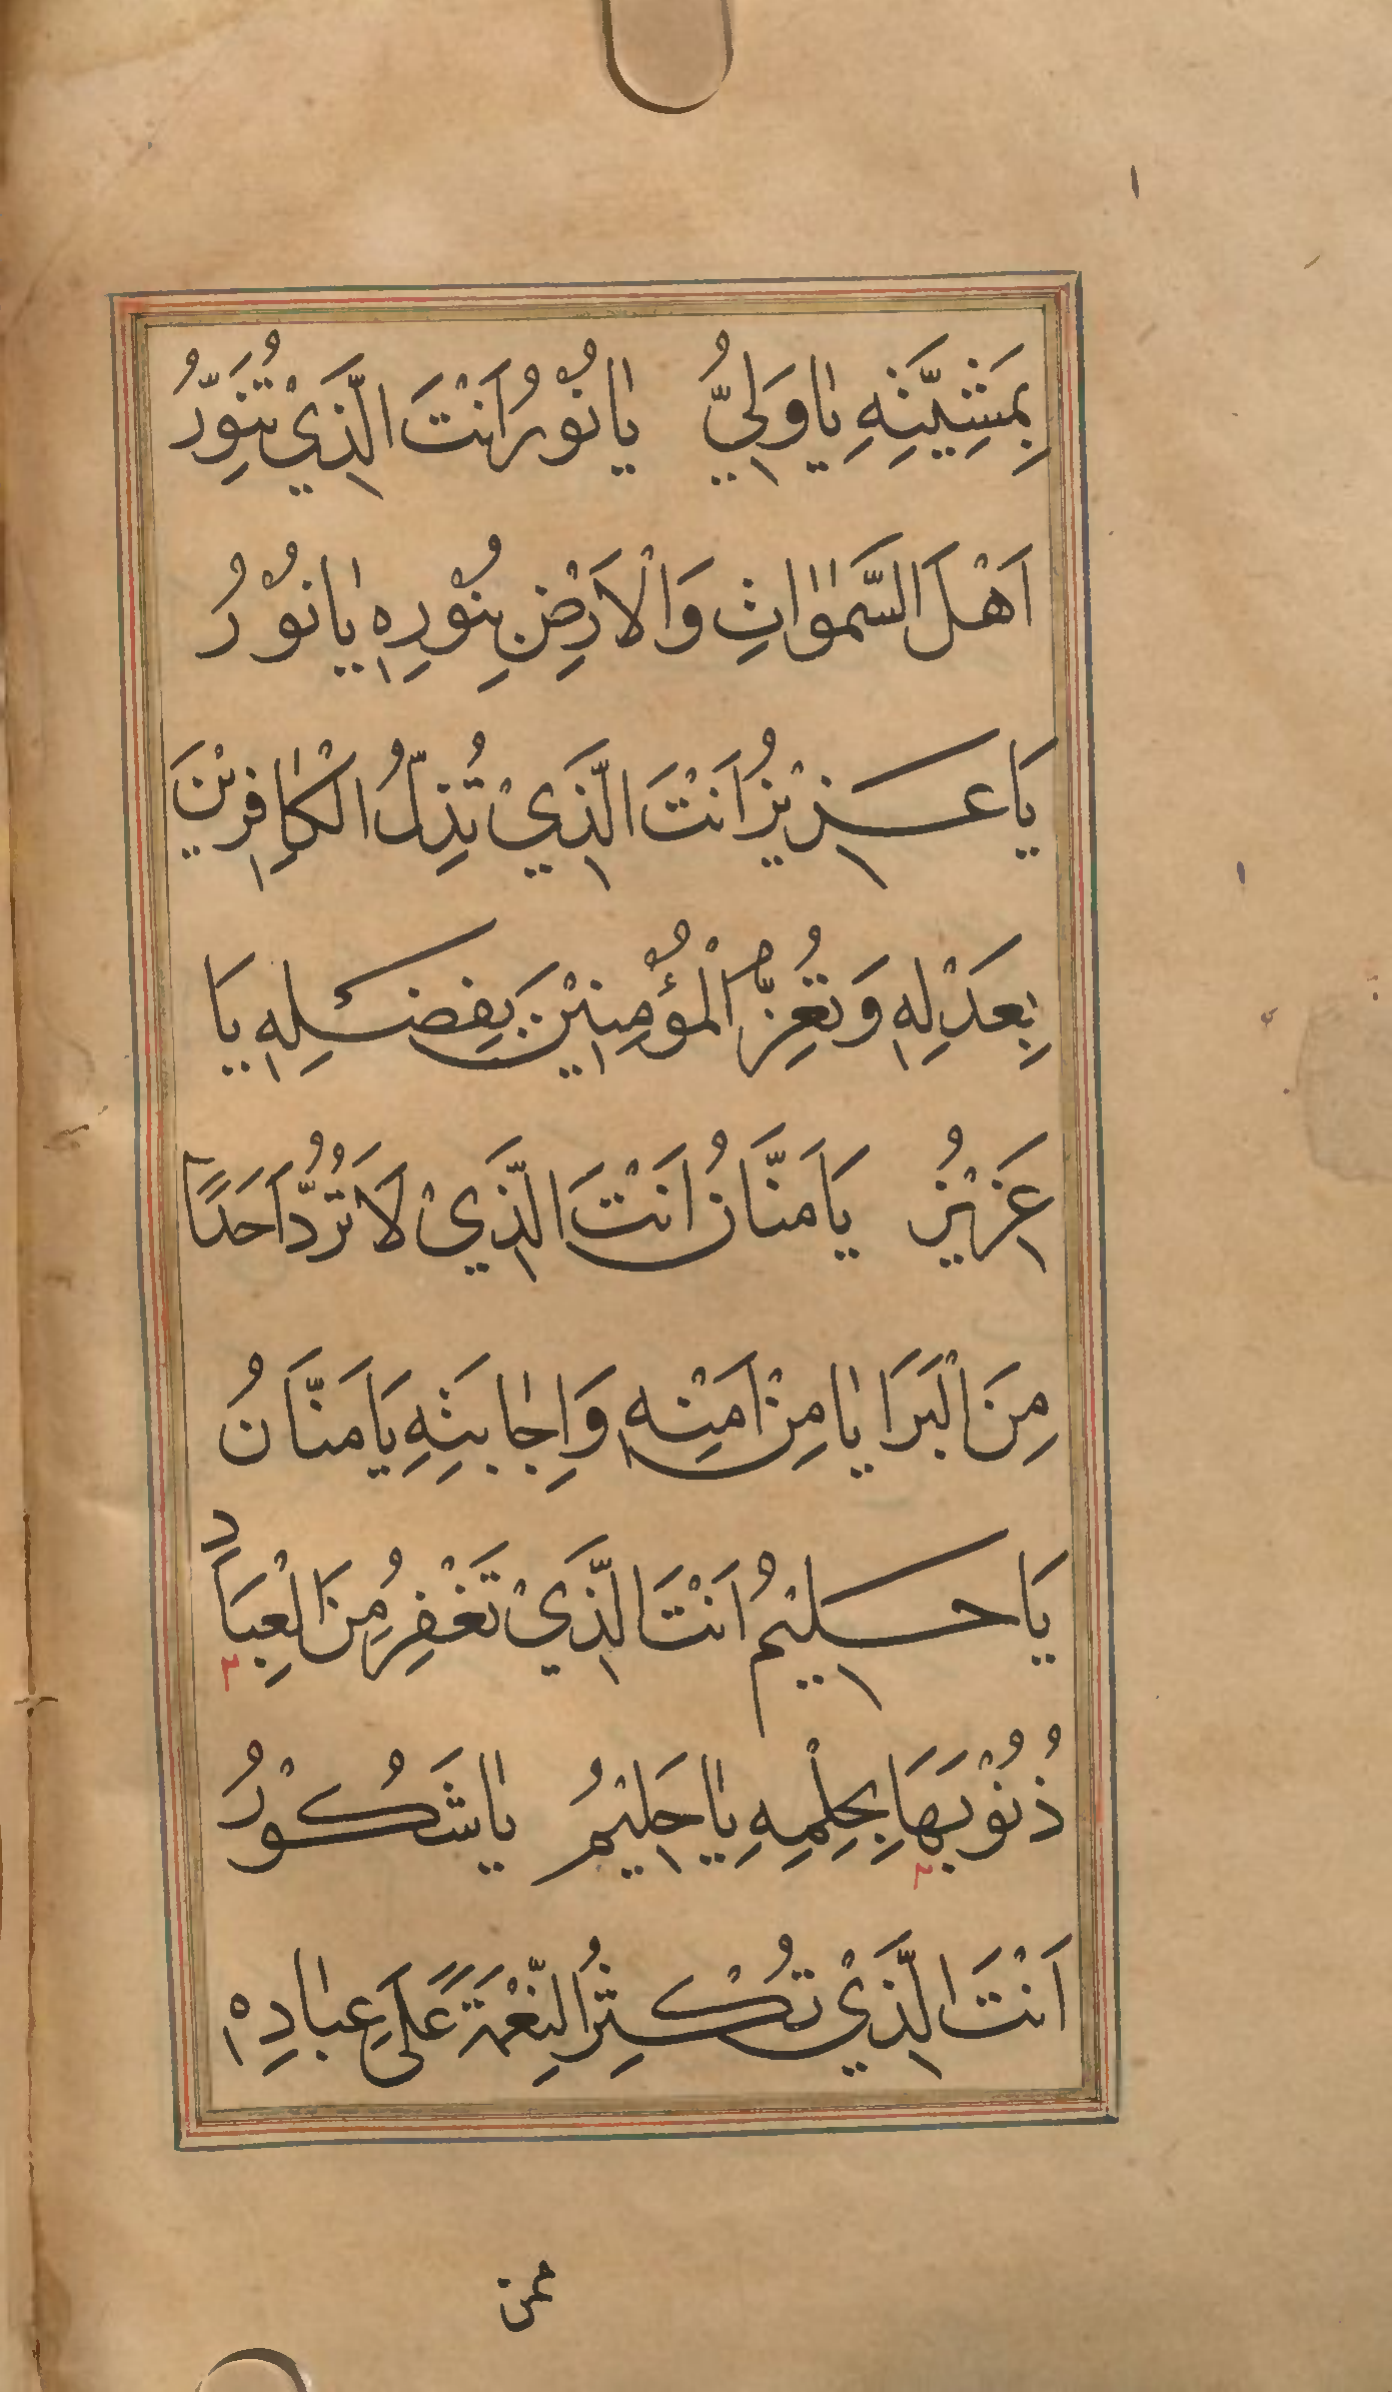 بِمَشِيَّتِهِ يٰا وَلِيُّ يٰا نُوْرُ اَنْتَ الَّذِيْ تُنَوِّرُ
اَهْلَ السَّمٰوٰاتِ وَالْاَرْضِ بِنُوْرِهٖ يٰا نُوْرُ
يَا عَزِيْزُ اَنْتَ الَّذِيْ تُذِلُّ الْكٰافِرِيْنَ
بِعَدْلِهٖ وَتُعِزُّ الْمُؤْمِنِيْنَ بِفَضْلِهٖ يَا
عَزِيْزُ يَا مَنَّانُ اَنْتَ الَّذِيْ لَا تَرُدُّ اَحَدًا
مِنَ الْبَرَايٰا مِنْ اَمْنِهٖ وَاِجٰابَتِهِ يَا مَنَّانُ
يَا حَلِيْمُ اَنْتَ الَّذِيْ تَغْفِرُ مِنَ الْعِبَادِ
ذُنُوْبَهَا بِحِلْمِهِ يٰا حَلِيْمُ يٰا شَكُوْرُ
اَنْتَ الَّذِيْ تُكْثِرُ النِّعْمَةَ عَلَى عِبٰادِهٖ